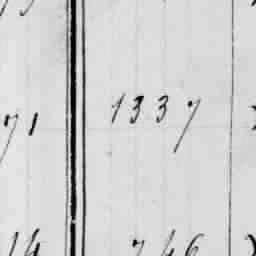 71 1337
14 746